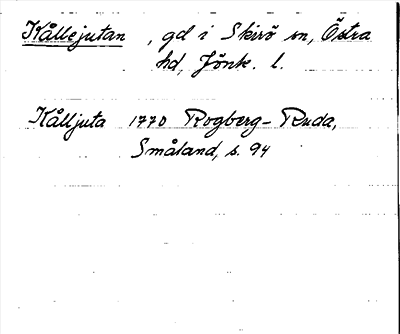 Kållejutan , gd i Skirö sn, Östra
hd, Jönk. l.
Kålljuta 1770 Rogberg-Ruda,
Småland, s. 94